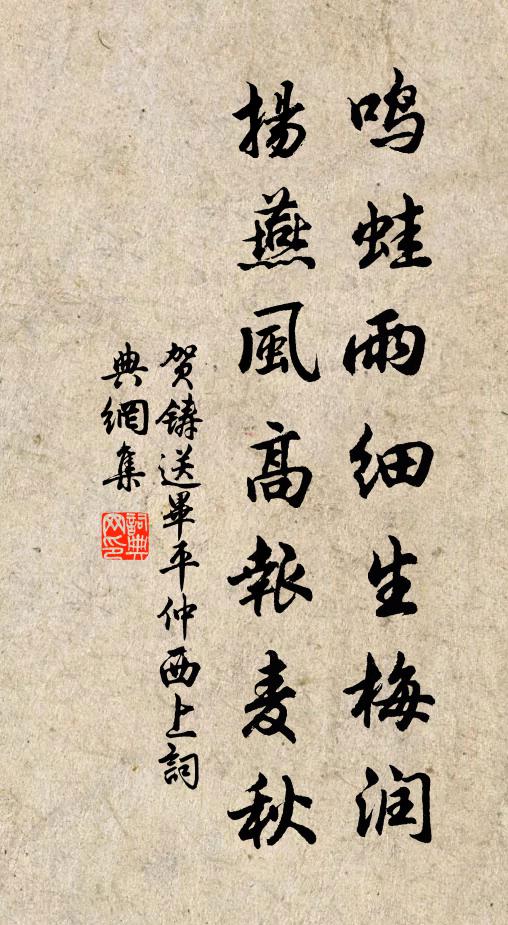 鸣蛙雨细生梅润
揚燕風高報麦秋
贺鑄送畢平仲西上詞
典網集
詞典
网印